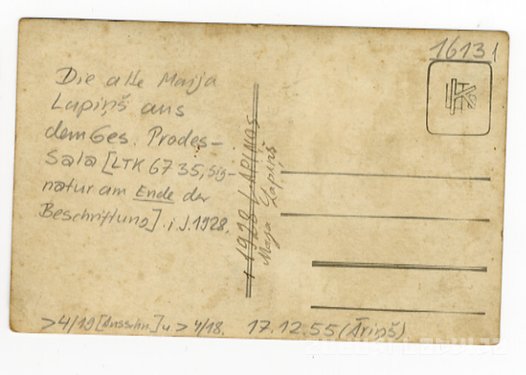 16131
Die alte Maija
Lapiņš aus
dem Ges. Prodes-
Sala [LTK 6735, Sig-
natur am Ende der
Beschriftung]. i J. 1928.
+ 1928 LAPINAS
Maija Lapiņš
>4/19 [Ausschn.] u > 4/18. 17.12.55 (Āriņš)